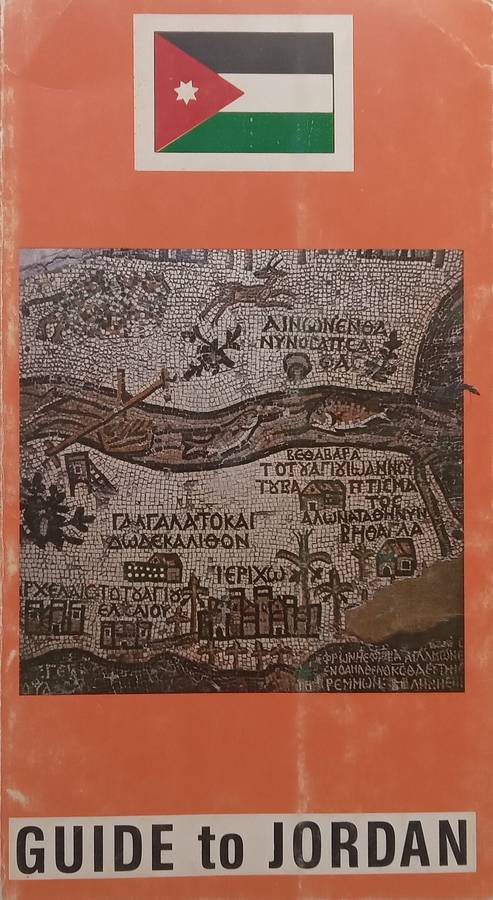 ΑΙΝωΝΕΝΘΑ
ΝΥΝΟCΑΠCΑ
ΦΑC
ΒΕΘΑΒΑΡΑ
ΤΟΤΟΥΑΓΙΟΥΙωΑΝΝΟΥ
ΤΟΥΒΑΠΤΙCΜΑ
ΤΟC
ΓΑΛΓΑΛΑΤΟΚΑΙ
ΔωΔΕΚΑΛΙΘΟΝ
ΑΛωΝΑΤΑΘΗΝΥΝ
ΒΗΘΑΓΛΑ
ΙΕΡΙΧω
ΑΡΧΕΛΑΙC
ΤΟΤΟΥΑΓΙΟΥ
ΕΛΙCΑΙΟΥ
GUIDE to JORDAN